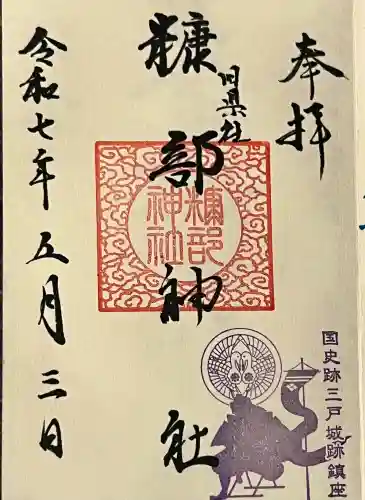 奉拝
旧県社
糠部神社
糠部
神社
令和七年五月三日
国史跡三戸城跡鎮座